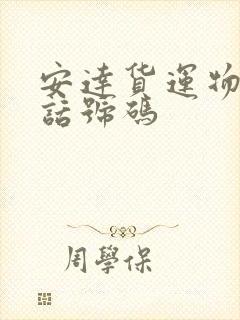 安達货運物
話號碼
周學保